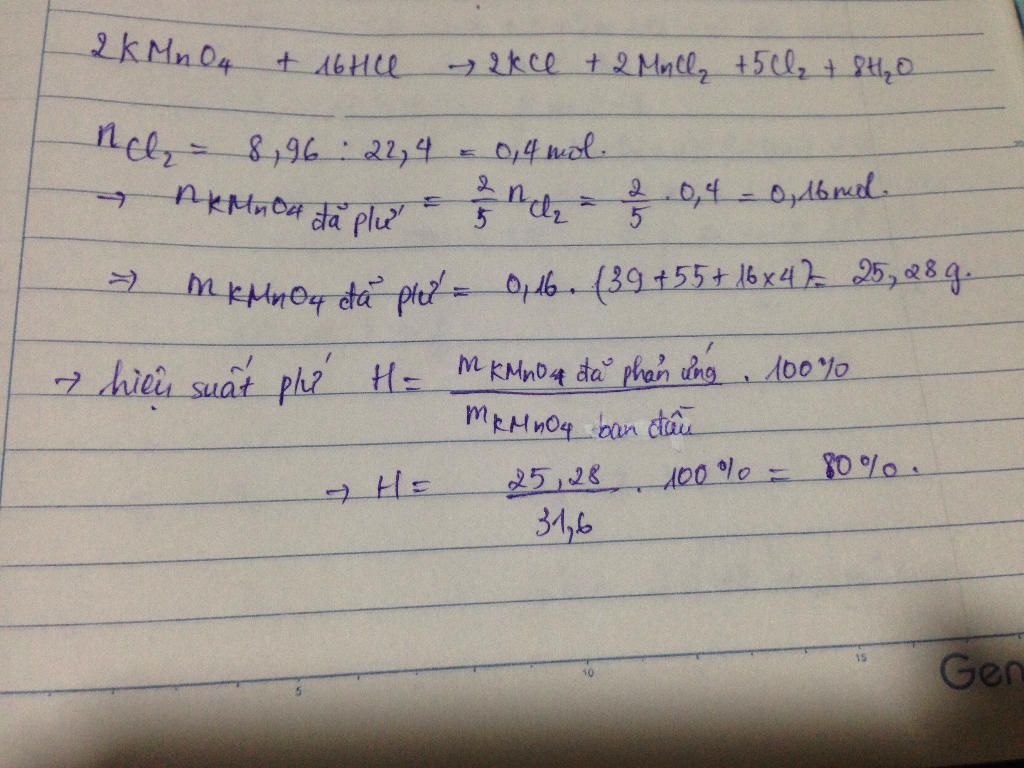 2KMnO4 + 16HCl → 2KCl + 2MnCl2 + 5Cl2 + 8H2O
nCl2 = 8,96 : 22,4 = 0,4 mol.
→ nKMnO4 đã pứ = 2/5 nCl2 = 2/5 . 0,4 = 0,16 mol.
⇒ mKMnO4 đã pứ = 0,16 . (39+55+16x4) = 25,28g.
→ hiệu suất pứ H = mKMnO4 đã phản ứng / mKMnO4 ban đầu . 100%
→ H = 25,28 / 31,6 . 100% = 80%.
5 10 15
Gen